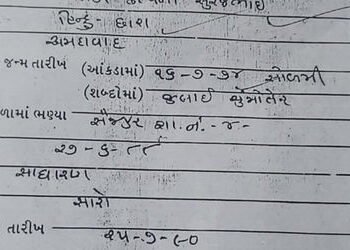 હિન્દુ - છારા
અમદાવાદ
જન્મ તારીખ (આંકડામાં) ૧૬-૭-૭૪ સોળમી
(શબ્દોમાં) જુલાઈ ચુંમોતેર
ળામાં ભણ્યા સૈજપુર શા.નં.-૪-
૨૭-૬-૮૮
સાધારણ
સારો
તારીખ ૨૫-૭-૯૦